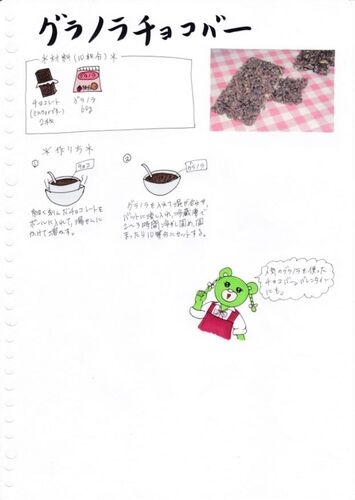 グラノラチョコバー
*材料(10組分)*
チョコレート
2枚
グラノラ
60g
*作り方*
①
チョコ
細かく刻んだチョコレートを
ボールに入れて、湯せんに
かけて溶かす。
②
グラノラ
グラノラを入れて混ぜ合わせ、
バットに流し入れ、冷蔵庫で
2〜3時間冷やし固め、固
まったら10等分にカットする。
人気のグラノラを使った
チョコバー。バレンタイン
にも♪